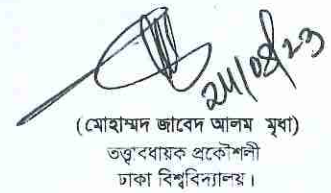 ২৪/০৪/২৩
(মোহাম্মদ জাবেদ আলম মৃধা)
তত্ত্বাবধায়ক প্রকৌশলী
ঢাকা বিশ্ববিদ্যালয়।